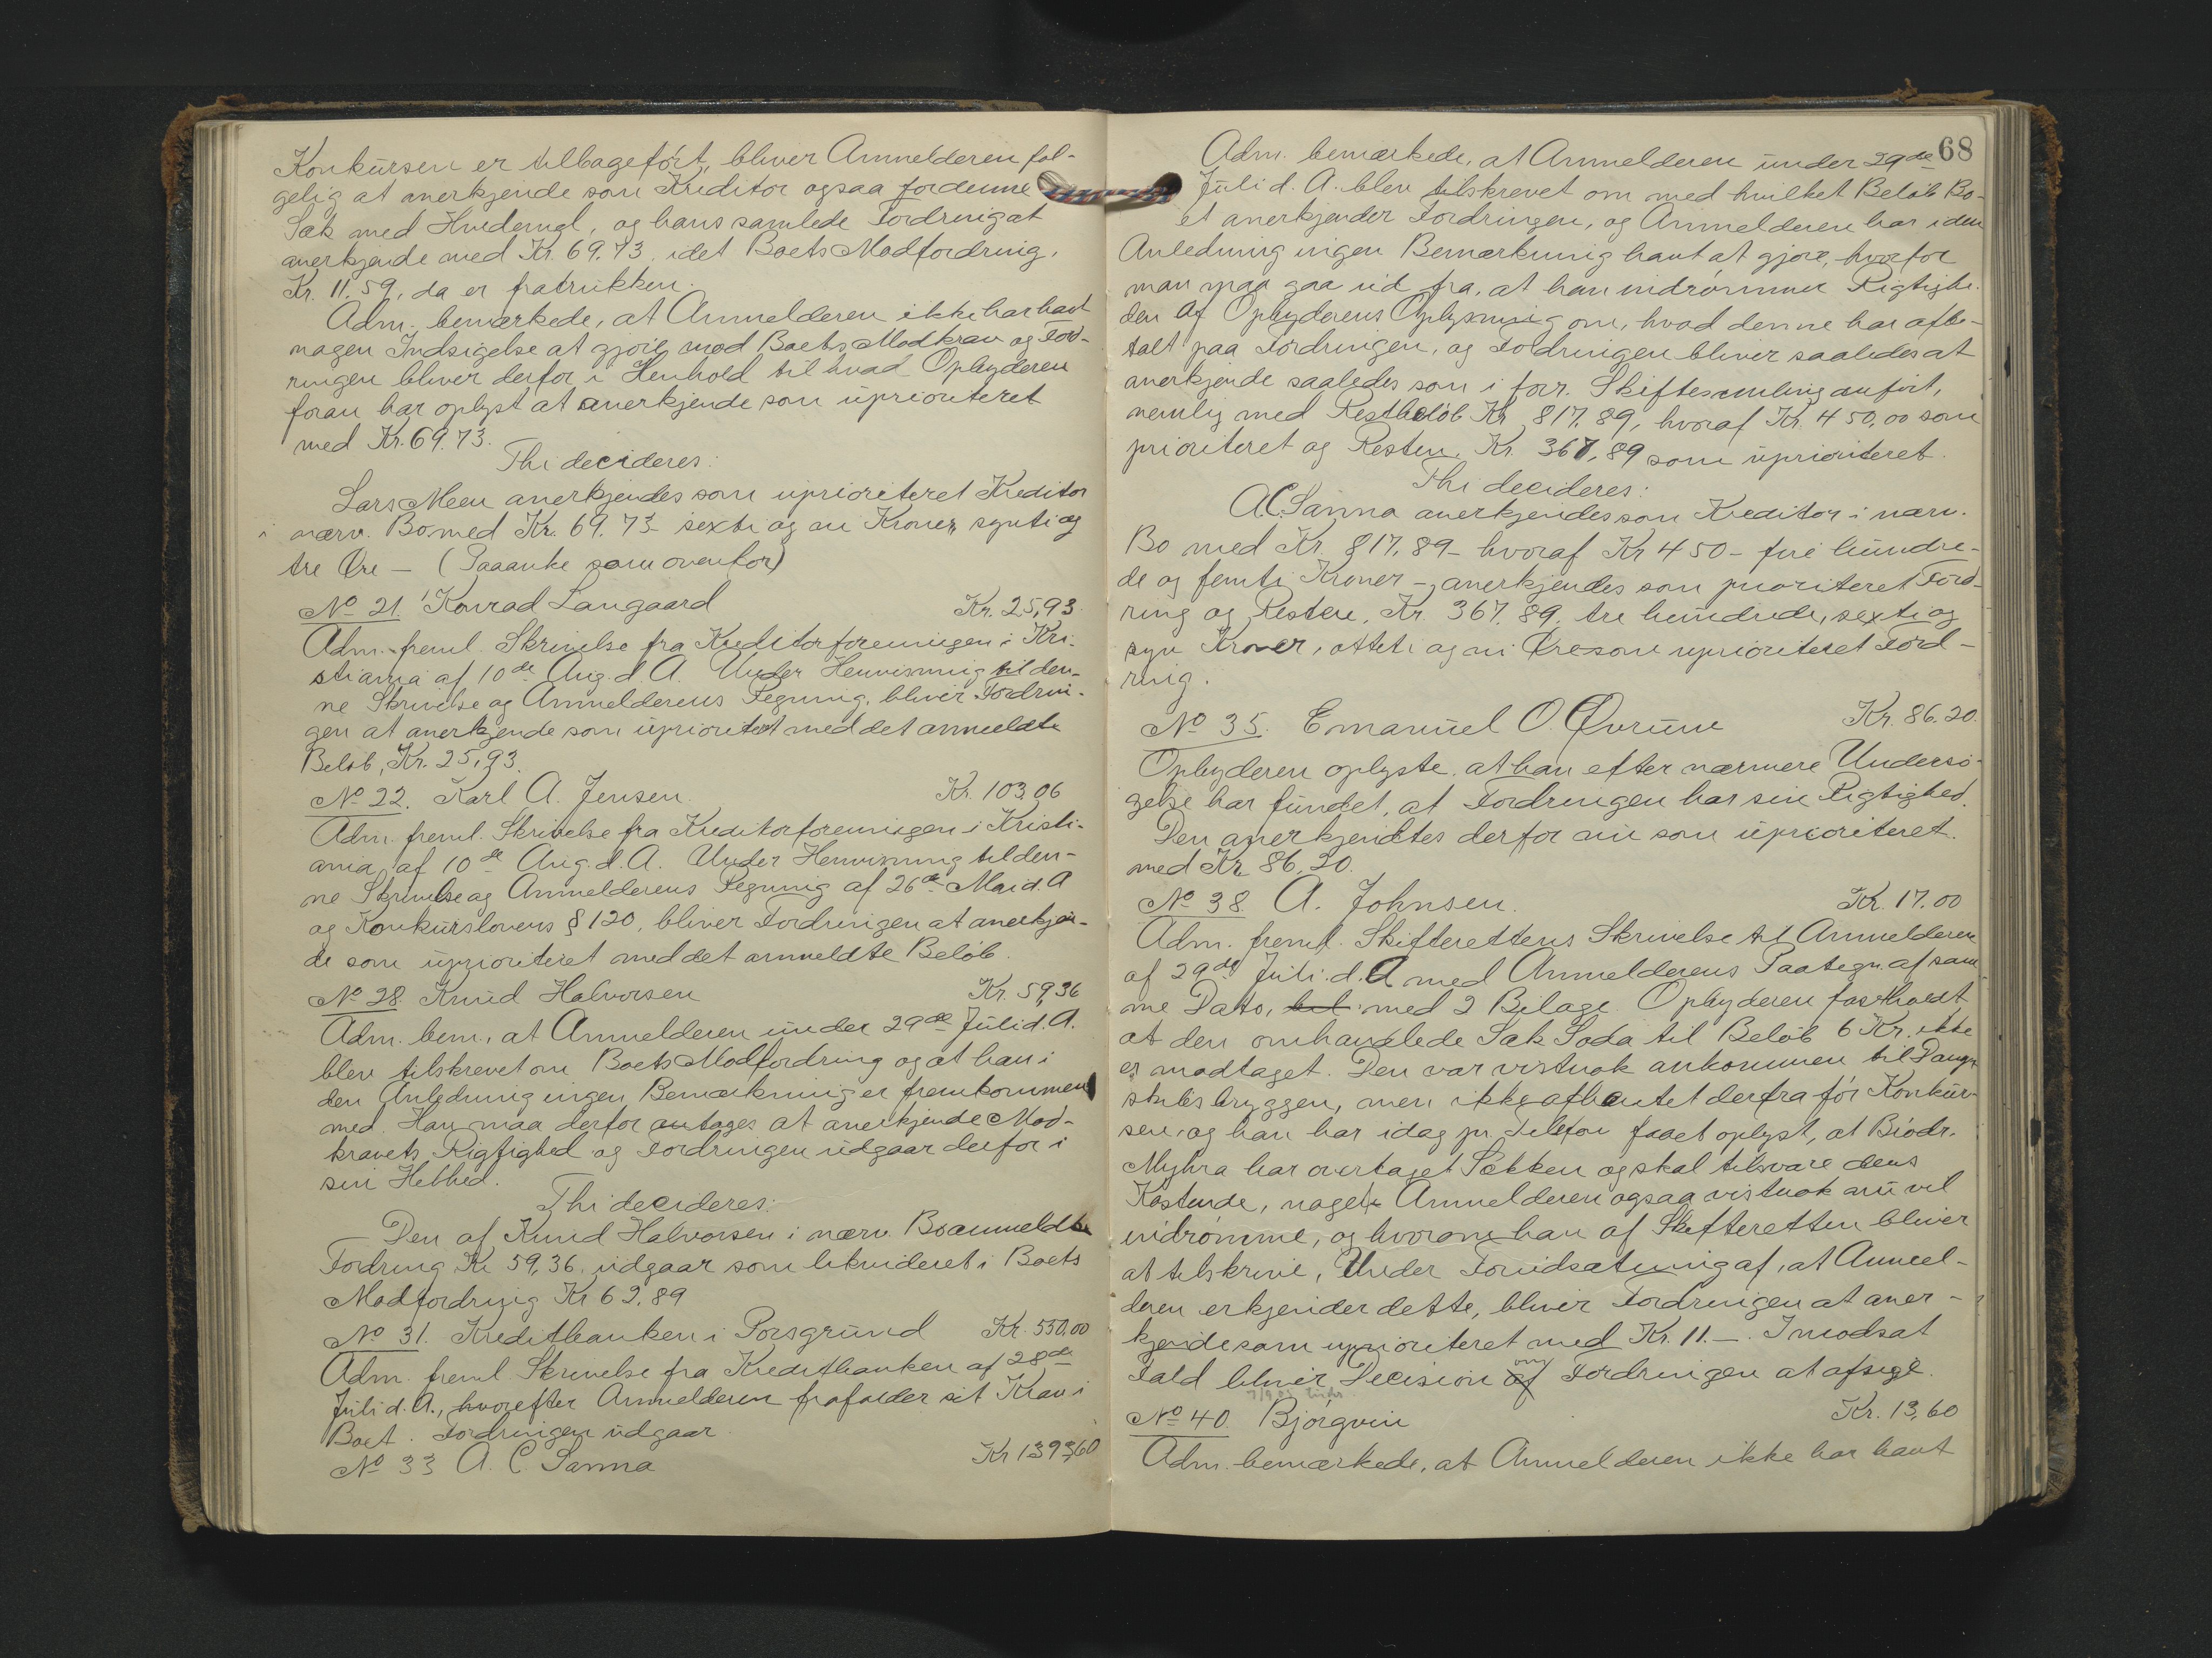 Konkursen er tilbageført, bliver Anmelderen føl-
gelig at anerkjende som Kreditor ogsaa for denne
Sæk med Hvedemel, og hans samlede Fordring at
anerkjende med Kr. 69.73, idet Boets Modfordring,
Kr. 11.59, da er fratrukken.
Adm. bemærkede, at Anmelderen ikke har havt
nogen Indsigelse at gjøre mod Boets Modkrav og Ford-
ringen bliver derfor i Henhold til hvad Opbyderen
foran har oplyst at anerkjende som uprioriteret
med Kr. 69.73.
Thi decideres:
Lars Meen anerkjendes som uprioriteret Kreditor
i nærv. Bo med Kr. 69.73 sexti og ni Kroner, synti og
tre Øre — (Paaanke som ovenfor)
No 21. Konrad Langaard Kr. 25,93
Adm. freml. Skrivelse fra Kreditorforeningen i Kri-
stiania af 10de Aug. d. A. Under Henvisning til den-
ne Skrivelse og Anmelderens Regning, bliver Fordrin-
gen at anerkjende som uprioritert med det anmeldte
Beløb, Kr. 25,93.
No 22. Karl A. Jensen Kr. 103,06
Adm. freml. Skrivelse fra Kreditorforeningen i Kristi-
ania af 10de Aug. d. A. Under Henvisning til den-
ne Skrivelse og Anmelderens Regning af 26de Mai d. A
og Konkurslovens § 120, bliver Fordringen at anerkjen-
de som uprioriteret med det anmeldte Beløb.
No 28. Knud Halvorsen Kr. 59,36
Adm. bem., at Anmelderen under 29de Juli d. A.
blev tilskrevet om Boets Modfordring og at han i
den Anledning ingen Bemærkning er fremkommen
med. Han maa derfor antages at anerkjende Mod-
kravets Rigtighed og Fordringen udgaar derfor i
sin Helhed.
Thi decideres:
Den af Knud Halvorsen i nærv. Bo anmeldte
Fordring Kr 59,36 udgaar som likvideret i Boets
Modfordring Kr 62.89
No 31. Kreditbanken i Porsgrund Kr. 550.00
Adm. freml Skrivelse fra Kreditbanken af 28de
Juli d. A., hvorefter Anmelderen frafalder sit Krav i
Boet. Fordringen udgaar.
No 33 A. C Sanna Kr 1393,60
68
Adm. bemærkede, at Anmelderen under 29de
Juli d. A. blev tilskrevet om med hvilket Beløb Bo-
et anerkjender Fordringen, og Anmelderen har i den
Anledning ingen Bemærkning havt at gjøre, hvorfor
man maa gaa ud fra, at han indrømmer Rigtighe-
den af Opbyderens Oplysning om, hvad denne har afbe-
talt paa Fordringen, og Fordringen bliver saaledes at
anerkjende saaledes som i forr. Skiftesamling anført,
nemlig med Restbeløb Kr 817,89, hvoraf Kr. 450,00 som
prioriteret og Resten, Kr. 367,89 som uprioriteret.
Thi decideres:
A.C. Sanna anerkjendes som Kreditor i nærv.
Bo med Kr. 817.89 — hvoraf Kr 450 — fire hundre-
de og femti Kroner — anerkjendes som prioriteret Ford-
ring og Resten, Kr. 367.89, tre hundrede, sexti og
syv Kroner, otteti og ni Øre som uprioriteret Ford-
ring.
No 35. Emanuel O. Øvrum Kr. 86.20.
Opbyderen oplyste, at han efter nærmere Undersø-
gelse har fundet, at Fordringen har sin Rigtighed.
Den anerkjendtes derfor nu som uprioriteret
med Kr 86,20.
No 38 A. Johnsen. Kr. 17.00
Adm. freml. Skifterettens Skrivelse til Anmelderen
af 29de Juli d. A med Anmelderens Paategn. af sam-
me Dato, bil med 2 Bilage. Opbyderen fastholdt
at den omhandlede Sæk Soda til Beløb 6 Kr. ikke
er modtaget. Den var vistnok ankommen til Damp-
skibsbryggen, men ikke afhentet derfra før Konkur-
sen, og han har idag pr. Telefon faaet oplyst, at Brødr.
Myhra har overtaget Sækken og skal tilsvare dens
Kostende, noget Anmelderen ogsaa vistnok nu vil
indrømme, og hvorom han af Skifteretten bliver
at tilskrive. Under Forudsætning af, at Anmel-
deren erkjender dette, bliver Fordringen at aner-
kjende som uprioriteret med Kr. 11.—. I modsat
Fald bliver Decision af om Fordringen at afsige.
No 40. Bjørgvin Kr. 13,60
Adm. bemærkede, at Anmelderen ikke har havt